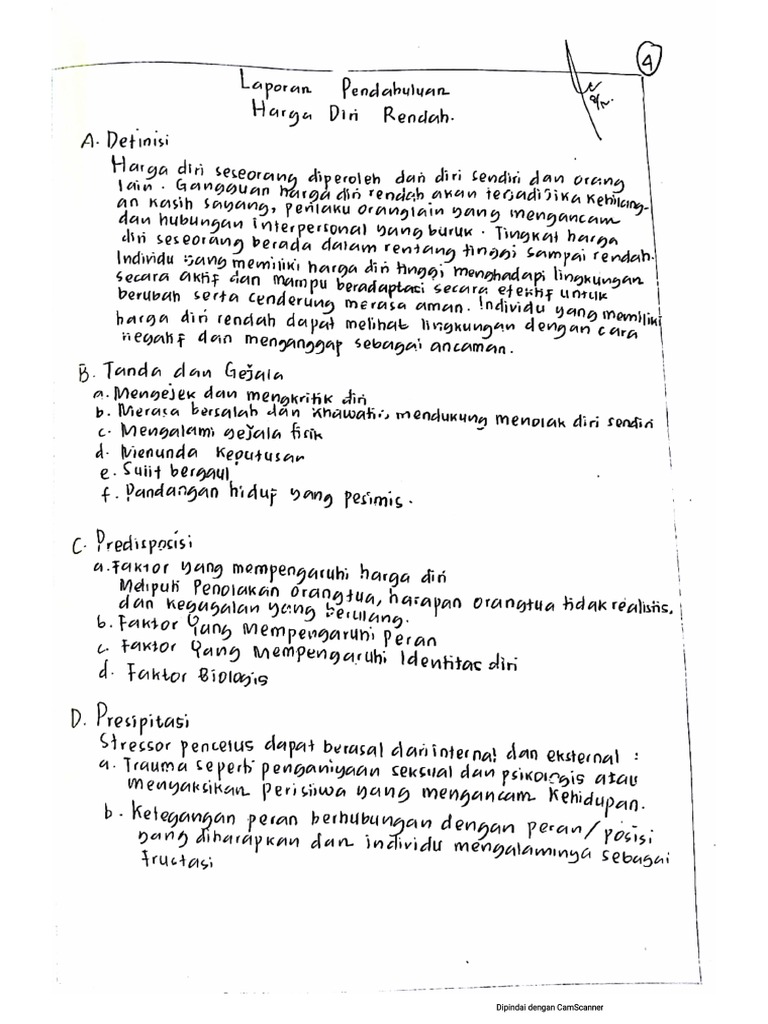 4
Laporan Pendahuluan
Harga Diri Rendah.
A. Definisi
Harga diri seseorang diperoleh dari diri sendiri dan orang
lain. Gangguan harga diri rendah akan terjadi jika kehilang-
an kasih sayang, perilaku orang lain yang mengancam
dan hubungan interpersonal yang buruk. Tingkat harga
diri seseorang berada dalam rentang tinggi sampai rendah.
Individu yang memiliki harga diri tinggi menghadapi lingkungan
secara aktif dan mampu beradaptasi secara efektif untuk
berubah serta cenderung merasa aman. Individu yang memiliki
harga diri rendah dapat melihat lingkungan dengan cara
negatif dan menganggap sebagai ancaman.
B. Tanda dan Gejala
a. Mengejek dan mengkritik diri
b. Merasa bersalah dan khawatir, mendukung menolak diri sendiri
c. Mengalami gejala fisik
d. Menunda keputusan
e. Sulit bergaul
f. Pandangan hidup yang pesimis.
C. Predisposisi
a. Faktor yang mempengaruhi harga diri
Meliputi Penolakan orangtua, harapan orangtua tidak realistis,
dan kegagalan yang berulang.
b. Faktor Yang Mempengaruhi Peran
c. Faktor Yang Mempengaruhi Identitas diri
d. Faktor Biologis
D. Presipitasi
Stressor pencetus dapat berasal dari internal dan eksternal :
a. Trauma seperti penganiyaan seksual dan psikologis atau
menyaksikan perisiwa yang mengancam kehidupan.
b. Ketegangan peran berhubungan dengan peran/posisi
yang diharapkan dan individu mengalaminya sebagai
fructasi
Dipindai dengan CamScanner